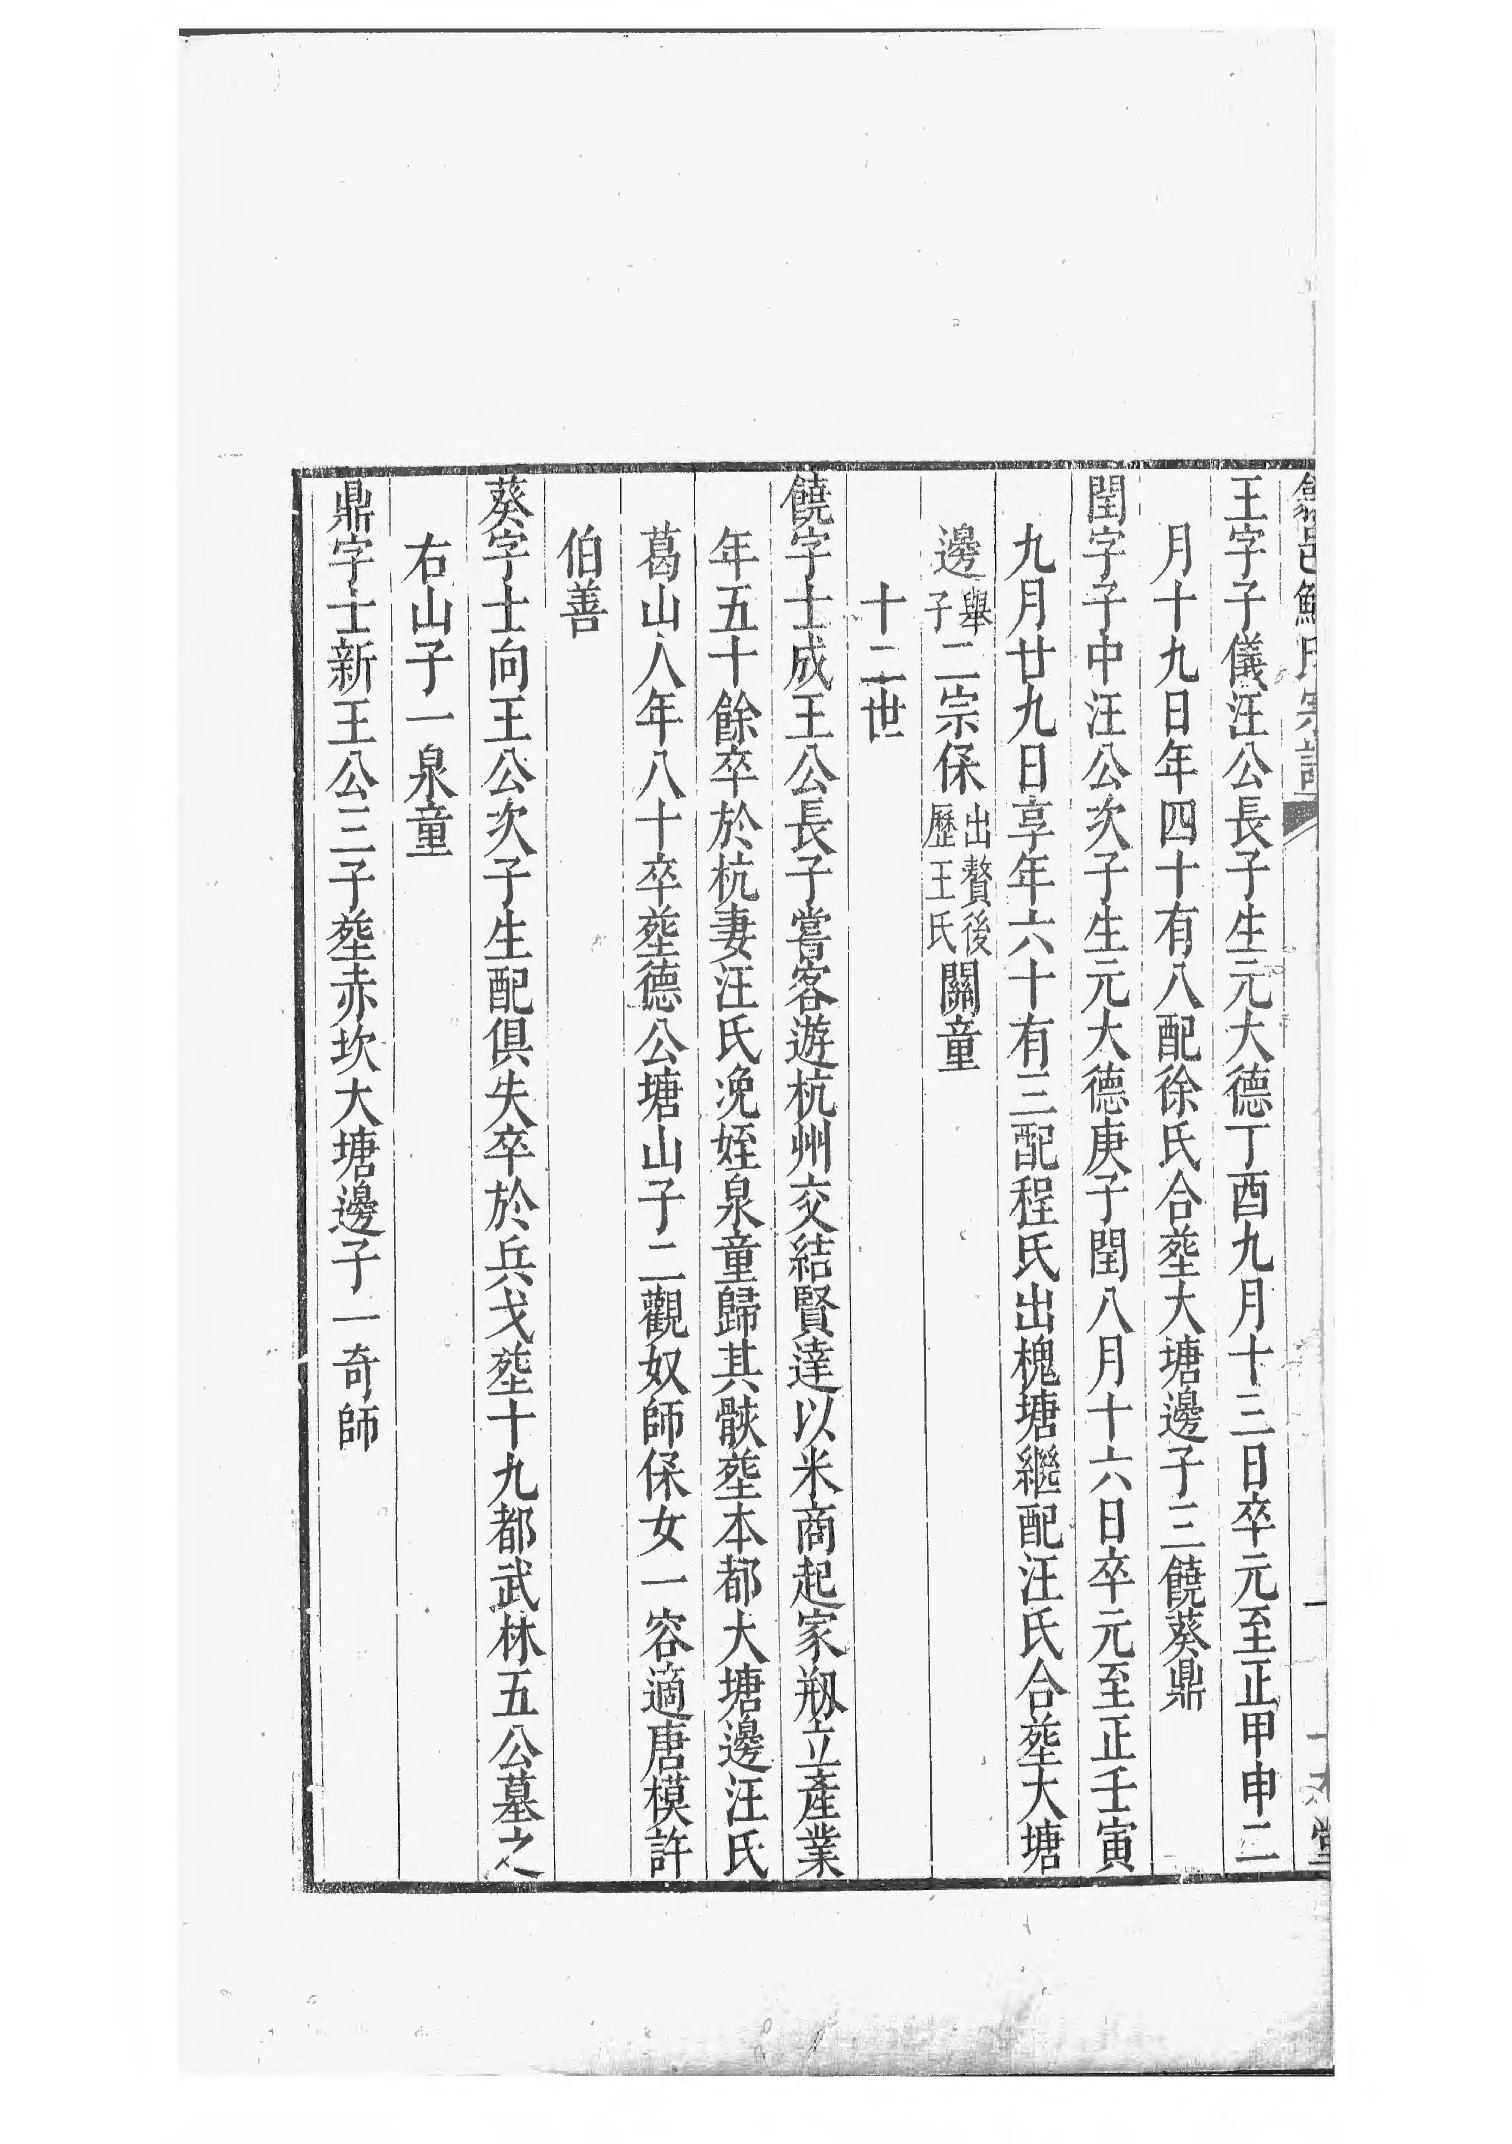 王字子儀汪公長子生元大德丁酉九月十三日卒元至正甲申二
月十九日年四十有八配徐氏合塟大塘邊子三饒葵鼎
閏字子中汪公次子生元大德庚子閏八月十六日卒元至正壬寅
九月廿九日享年六十有三配程氏出槐塘繼配汪氏合塟大塘
邊舉子二宗保出贅後歷王氏關童
十二世
饒字士成王公長子嘗客遊杭州交結賢達以米商起家剏立產業
年五十餘卒於杭妻汪氏浼姪泉童歸其骸塟本都大塘邊汪氏
葛山人年八十卒塟德公塘山子二觀奴師保女一容適唐模許
伯善
葵字士向王公次子生配俱失卒於兵戈塟十九都武林五公墓之
右山子一泉童
鼎字士新王公三子塟赤坎大塘邊子一奇師